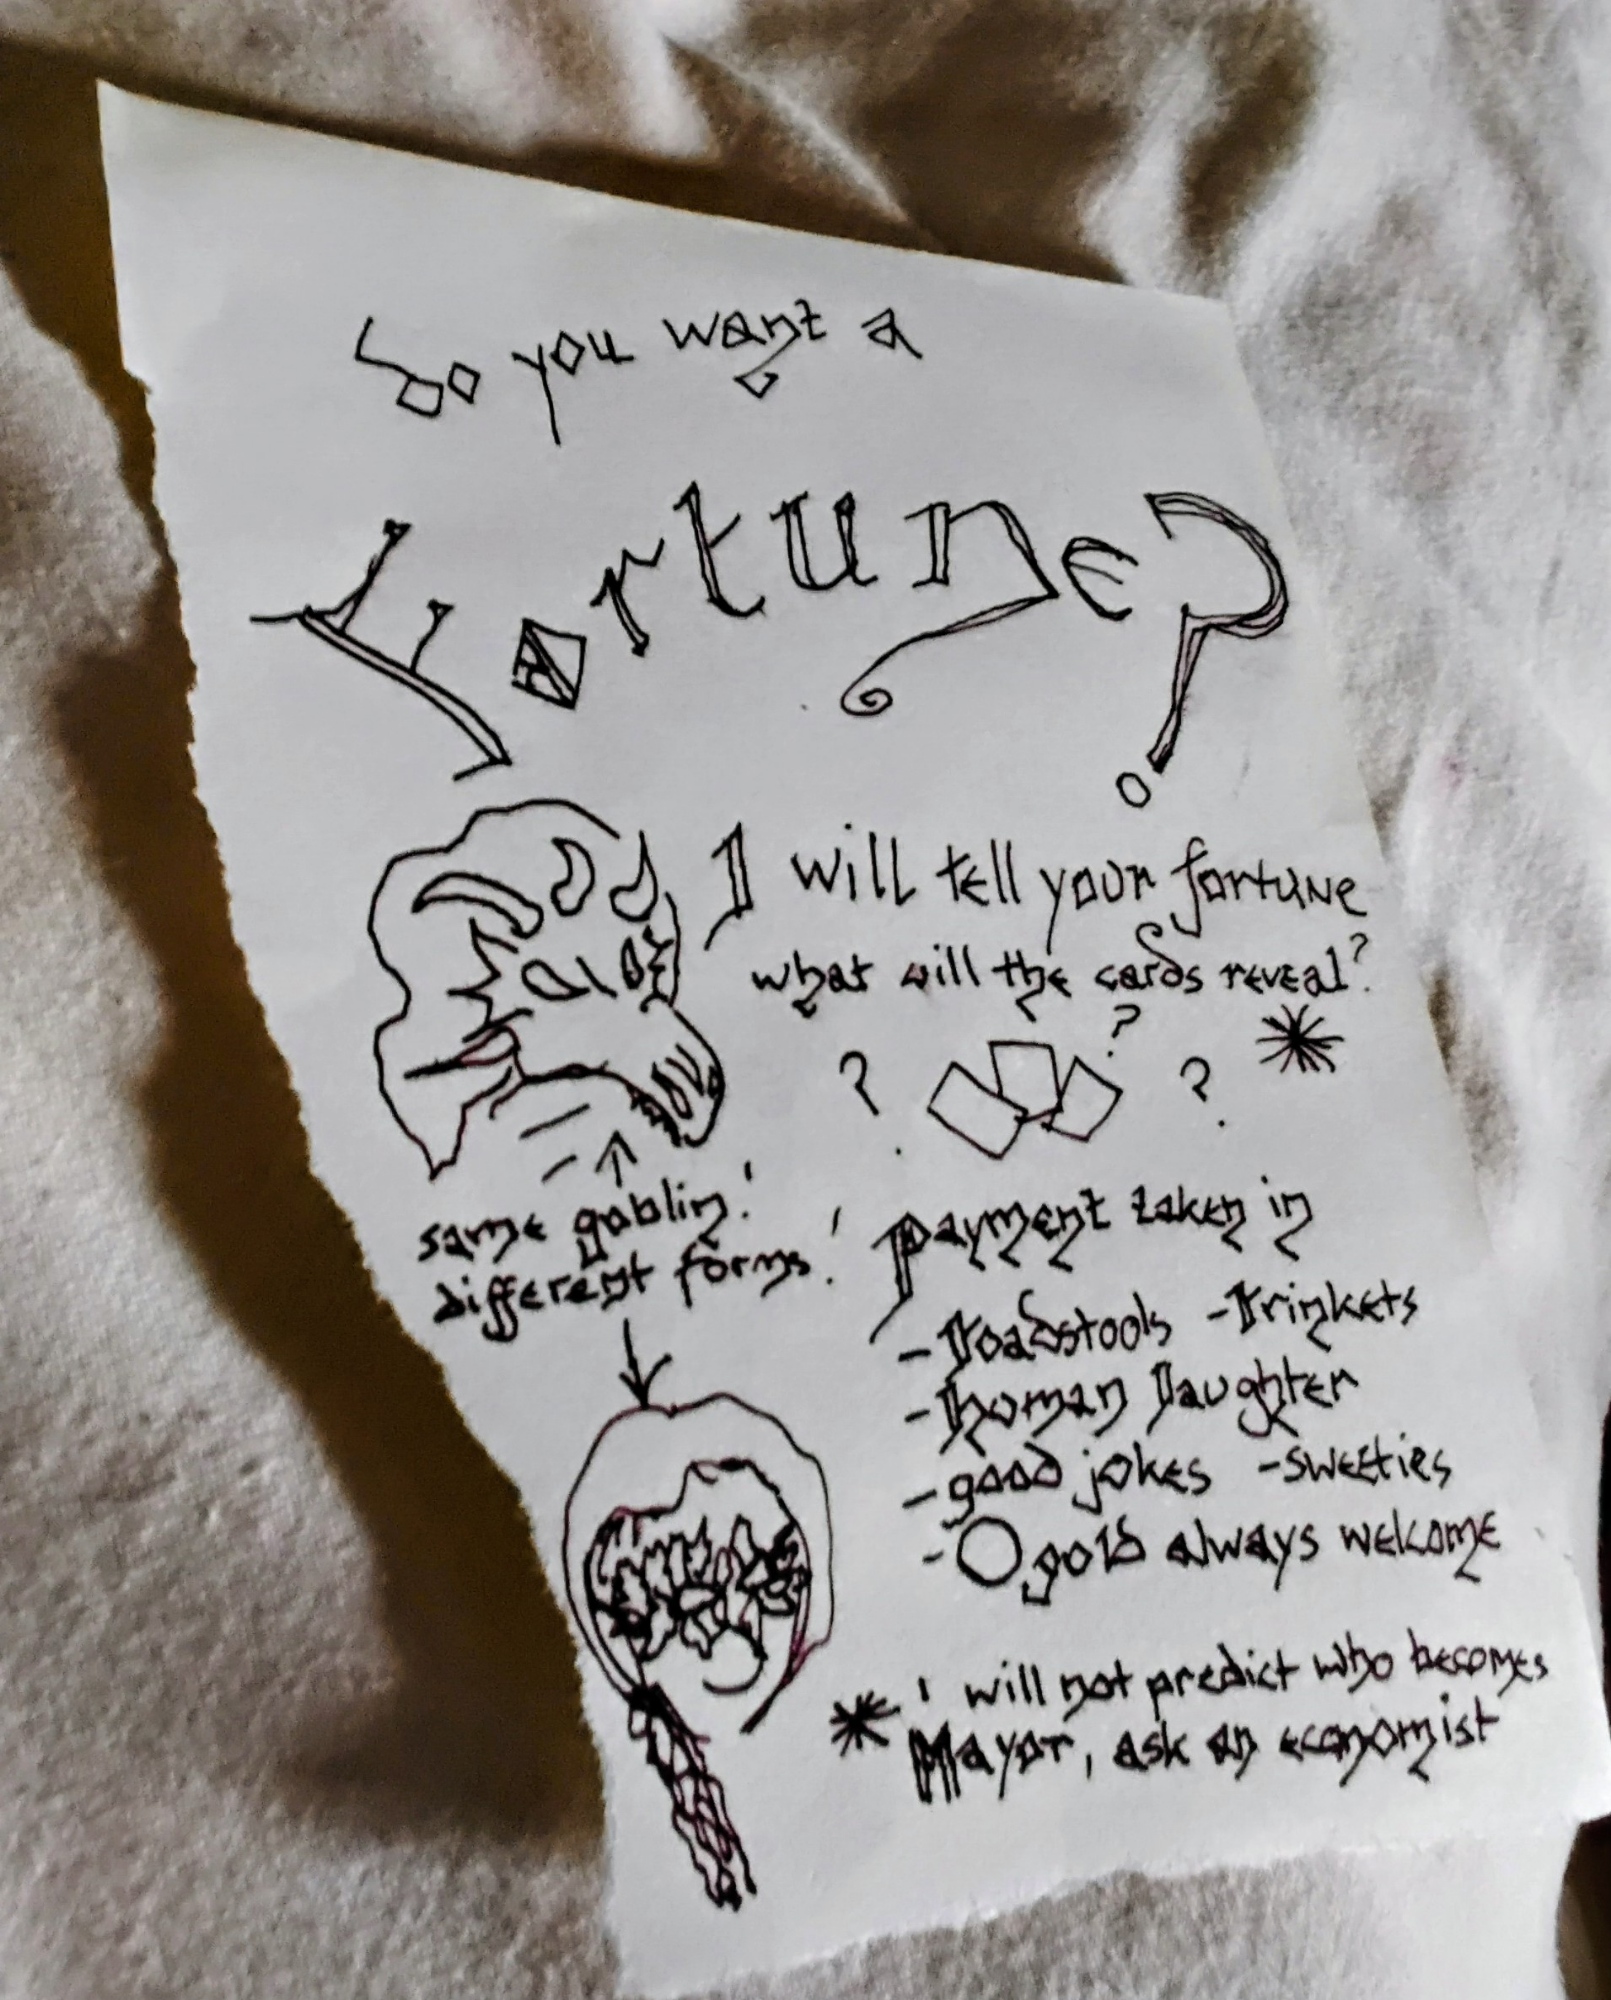 So you want a
Fortune?
I will tell your fortune
what will the cards reveal?
? ? ? *
same goblin!
different forms!
Payment taken in
- Toadstools - Trinkets
- human Daughter
- good jokes - sweeties
- O gold always welcome
* I will not predict who becomes
Mayor, ask an economist